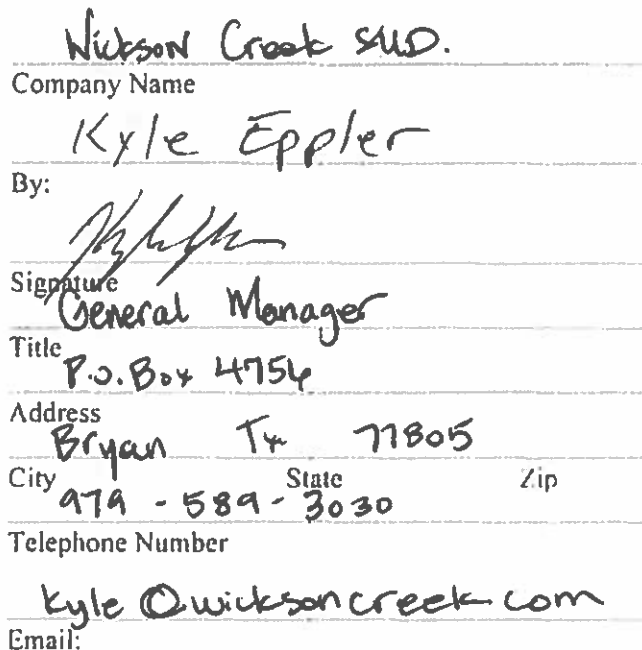 Wickson Creek SUD.
Company Name
Kyle Eppler
By:
Signature
General Manager
Title
P.O. Box 4756
Address
Bryan Tx 77805
City State Zip
979 - 589 - 3030
Telephone Number
kyle@wicksoncreek.com
Email: